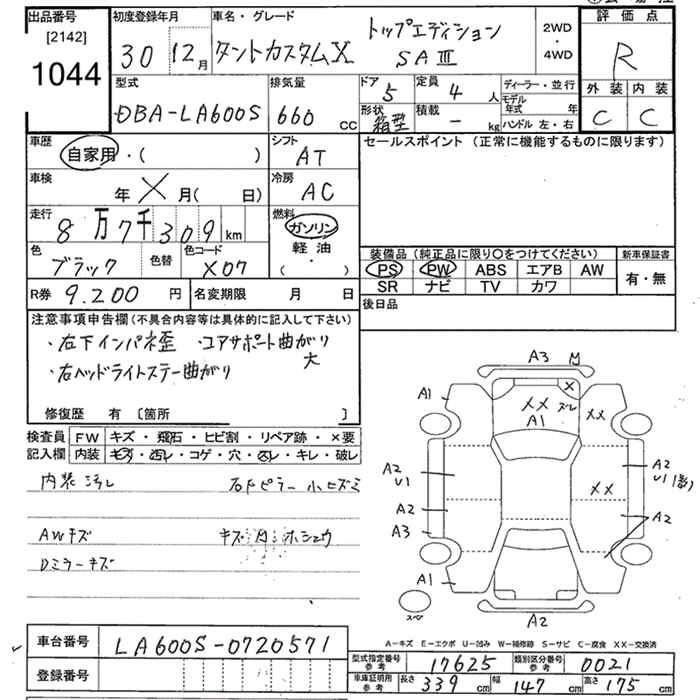 出品番号
[2142]
1044
初度登録年月
30 12月
車名・グレード
タントカスタムX トップエディション
SAⅢ
2WD
・
4WD
評価点
R
外装 内装
C C
型式
DBA-LA600S
排気量
660 cc
ドア 5
定員 4 人
形状 箱型
積載 - kg
ディーラー・並行
モデル年式 年
ハンドル 左・右
車歴
自家用・( )
シフト
AT
セールスポイント (正常に機能するものに限ります)
車検
年 X 月( 日)
冷房
AC
走行
8万7千309 km
燃料
ガソリン
軽油
・( )
色
ブラック
色替
色コード
X07
装備品(純正品に限り○をつけてください)
PS PW ABS エアB AW
SR ナビ TV カワ
新車保証書
有・無
R券 9.200 円
名変期限 月 日
後日品
注意事項申告欄(不具合内容等は具体的に記入して下さい)
・右下インパネ歪 ・コアサポート曲がり
大
・右ヘッドライトステー曲がり
修復歴 有 [箇所 ]
検査員 FW キズ・飛石・ヒビ割・リペア跡・×要
記入欄 内装 キズ・汚レ・コゲ・穴・スレ・キレ・破レ
内装汚レ
右Fピラー小ヒズミ
AWキズ
キズ・凹・ホシュウ
Dミラーキズ
A3 M
A1
X
XX ズレ
XX
A1
A2
U1
A2
U1
XX
A2
A3
A2
A1
スペ
A2
A-キズ E-エクボ U-凹み W-補修跡 S-サビ C-腐食 XX-交換済
車台番号
LA600S-0720571
登録番号
型式指定番号 参考 17625
類別区分番号 参考 0021
車庫証明用 参考
長さ 339 cm
幅 147 cm
高さ 175 cm